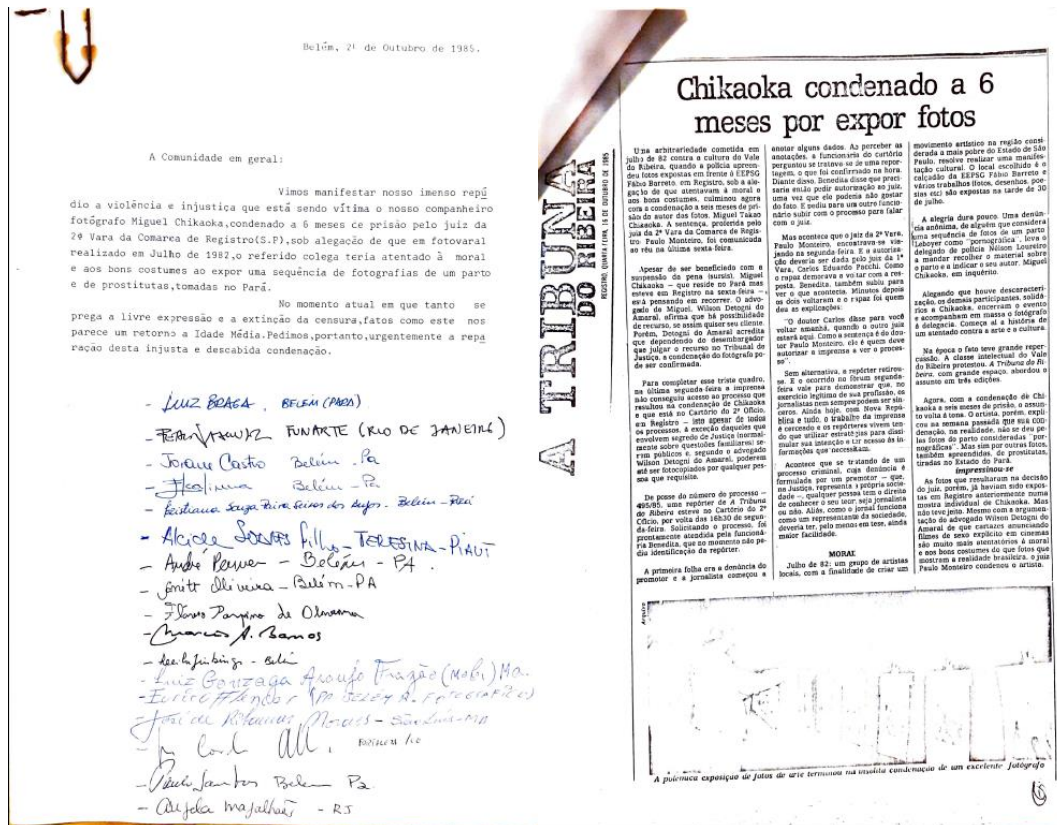 Belém, 21 de Outubro de 1985.
A Comunidade em geral:
Vimos manifestar nosso imenso repú
dio a violência e injustiça que está sendo vítima o nosso companheiro
fotógrafo Miguel Chikaoka,condenado a 6 meses ce prisão pelo juiz da
2ª Vara da Comarea de Registro(S.P),sob alegação de que em fotovaral
realizado em Julho de 1982,o referido colega teria atentado à moral
e aos bons costumes ao expor uma sequência de fotografias de um parto
e de prostitutas,tomadas no Pará.
No momento atual em que tanto se
prega a livre expressão e a extinção da censura,fatos como este nos
parece um retorno a Idade Média.Pedimos,portanto,urgentemente a repa
ração desta injusta e descabida condenação.
- LUIZ BRAGA. BELÉM (PARÁ)
- FUNARTE (RIO DE JANEIRO)
- Jorane Castro Belém . Pa
- Belém - Pa
- Belém - Pará
- Alcide SOARES filho - TERESINA - PIAUÍ
- André - Belém - PA.
- Oliveira - Belém - PA
- de
- Marcos A. Barros
- Belém
- Luiz Gonzaga Araujo Frazão (Mobi) Ma.
- BELÉM
- José de Ribamar Moraes - São Luís - MA
- Paulo Santos Belem Pa
- Angela Magalhães - RJ
A TRIBUNA
DO RIBEIRA
REGISTRO, QUARTA-FEIRA, 16 DE OUTUBRO DE 1985
Chikaoka condenado a 6
meses por expor fotos
Uma arbitrariedade cometida em
julho de 82 contra a cultura do Vale
do Ribeira, quando a polícia apreen-
deu fotos expostas em frente à EEPSG
Fábio Barreto, em Registro, sob a ale-
gação de que atentavam à moral e
aos bons costumes, culminou agora
com a condenação a seis meses de pri-
são do autor das fotos, Miguel Takao
Chikaoka. A sentença, proferida pelo
juiz da 2ª Vara da Comarca de Regis-
tro, Paulo Monteiro, foi comunicada
ao réu na última sexta-feira.
Apesar de ser beneficiado com a
suspensão da pena (sursis), Miguel
Chikaoka – que reside no Pará mas
esteve em Registro na sexta-feira –
está pensando em recorrer. O advo-
gado de Miguel, Wilson Detogni do
Amaral, afirma que há possibilidade
de recurso, se assim quiser seu cliente.
Porém, Detogni do Amaral acredita
que dependendo do desembargador
que julgar o recurso no Tribunal de
Justiça, a condenação do fotógrafo po-
de ser confirmada.
Para completar esse triste quadro,
na última segunda-feira a imprensa
não conseguiu acesso ao processo que
resultou na condenação de Chikaoka
e que está no Cartório do 2º Ofício,
em Registro – isto apesar de todos
os processos, à exceção daqueles que
envolvem segredo de Justiça (normal-
mente sobre questões familiares) se-
rem públicos e, segundo o advogado
Wilson Detogni do Amaral, poderem
até ser fotocopiados por qualquer pes-
soa que requisite.
De posse do número do processo –
495/85, uma repórter de A Tribuna
do Ribeira esteve no Cartório do 2º
Ofício, por volta das 16h30 de segun-
da-feira. Solicitando o processo, foi
prontamente atendida pela funcioná-
ria Benedita, que no momento não pe-
diu identificação da repórter.
A primeira folha era a denúncia do
promotor e a jornalista começou a
anotar alguns dados. Ao perceber as
anotações, a funcionária do cartório
perguntou se tratava-se de uma repor-
tagem, o que foi confirmado na hora.
Diante disso, Benedita disse que preci-
saria então pedir autorização ao juiz,
uma vez que ele poderia não gostar
do fato. E pediu para um outro funcio-
nário subir com o processo para falar
com o juiz.
Mas acontece que o juiz da 2ª Vara,
Paulo Monteiro, encontrava-se via-
jando na segunda-feira. E a autoriza-
ção deveria ser dada pelo juiz da 1ª
Vara, Carlos Eduardo Pacchi. Como
o rapaz demorava a voltar com a res-
posta, Benedita, também subiu para
ver o que acontecia. Minutos depois
os dois voltaram e o rapaz foi quem
deu as explicações:
"O doutor Carlos disse para você
voltar amanhã, quando o outro juiz
estará aqui. Como a sentença é do dou-
tor Paulo Monteiro, ele é quem deve
autorizar a imprensa a ver o proces-
so".
Sem alternativa, a repórter retirou-
se. E o ocorrido no fórum segunda-
feira vale para demonstrar que, no
exercício legítimo de sua profissão, os
jornalistas nem sempre podem ser sin-
ceros. Ainda hoje, com Nova Repú-
blica e tudo, o trabalho da imprensa
é cerceado e os repórteres vivem ten-
do que utilizar estratégias para dissi-
mular sua intenção e ter acesso às in-
formações que necessitam.
Acontece que se tratando de um
processo criminal, cuja denúncia é
formulada por um promotor – que,
na Justiça, representa a própria socie-
dade –, qualquer pessoa tem o direito
de conhecer o seu teor, seja jornalista
ou não. Aliás, como o jornal funciona
como um representante da sociedade,
deveria ter, pelo menos em tese, ainda
maior facilidade.
MORAL
Julho de 82: um grupo de artistas
locais, com a finalidade de criar um
movimento artístico na região consi-
derada a mais pobre do Estado de São
Paulo, resolve realizar uma manifes-
tação cultural. O local escolhido é o
calçadão da EEPSG Fábio Barreto e
vários trabalhos (fotos, desenhos, poe-
sias etc) são expostas na tarde de 30
de julho.
A alegria dura pouco. Uma denún-
cia anônima, de alguém que considera
uma sequência de fotos de um parto
Leboyer como "pornográfica", leva o
delegado de polícia Nélson Loureiro
a mandar recolher o material sobre
o parto e a indicar o seu autor, Miguel
Chikaoka, em inquérito.
Alegando que houve descaracteri-
zação, os demais participantes, solidá-
rios a Chikaoka, encerram o evento
e acompanham em massa o fotógrafo
à delegacia. Começa aí a história de
um atentado contra a arte e a cultura.
Na época o fato teve grande reper-
cussão. A classe intelectual do Vale
do Ribeira protestou. A Tribuna do Ri-
beira, com grande espaço, abordou o
assunto em três edições.
Agora, com a condenação de Chi-
kaoka a seis meses de prisão, o assun-
to volta à tona. O artista, porém, expli-
cou na semana passada que sua con-
denação, na realidade, não se deu pe-
las fotos do parto consideradas "por-
nográficas". Mas sim por outras fotos,
também apreendidas, de prostitutas,
tiradas no Estado do Pará.
impressinou-se
As fotos que resultaram na decisão
do juiz, porém, já haviam sido expos-
tas em Registro anteriormente numa
mostra individual de Chikaoka. Mas
não teve jeito. Mesmo com a argumen-
tação do advogado Wilson Detogni do
Amaral de que cartazes anunciando
filmes de sexo explícito em cinemas
são muito mais atentatórios à moral
e aos bons costumes do que fotos que
mostram a realidade brasileira, o juiz
Paulo Monteiro condenou o artista.
Arquivo
A polêmica exposição de fotos de arte terminou na insólita condenação de um excelente fotógrafo